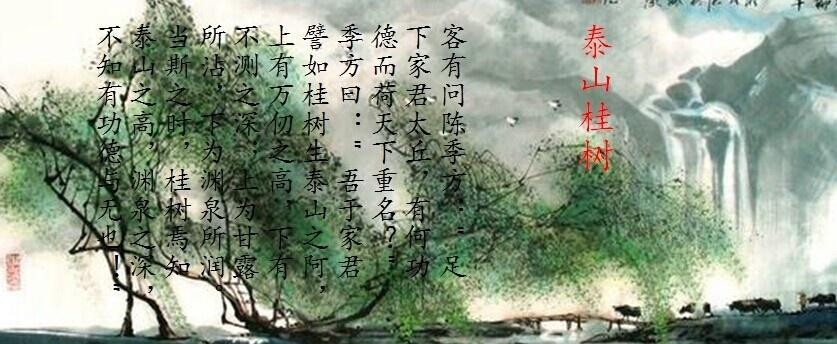 泰山桂树
客有问陈季方:“足
下家君太丘,有何功
德而荷天下重名?”
季方曰:“吾于家君
譬如桂树生泰山之阿,
上有万仞之高,下有
不测之深;上为甘露
所沾,下为渊泉所润。
当斯之时,桂树焉知
泰山之高,渊泉之深,
不知有功德与无也!”